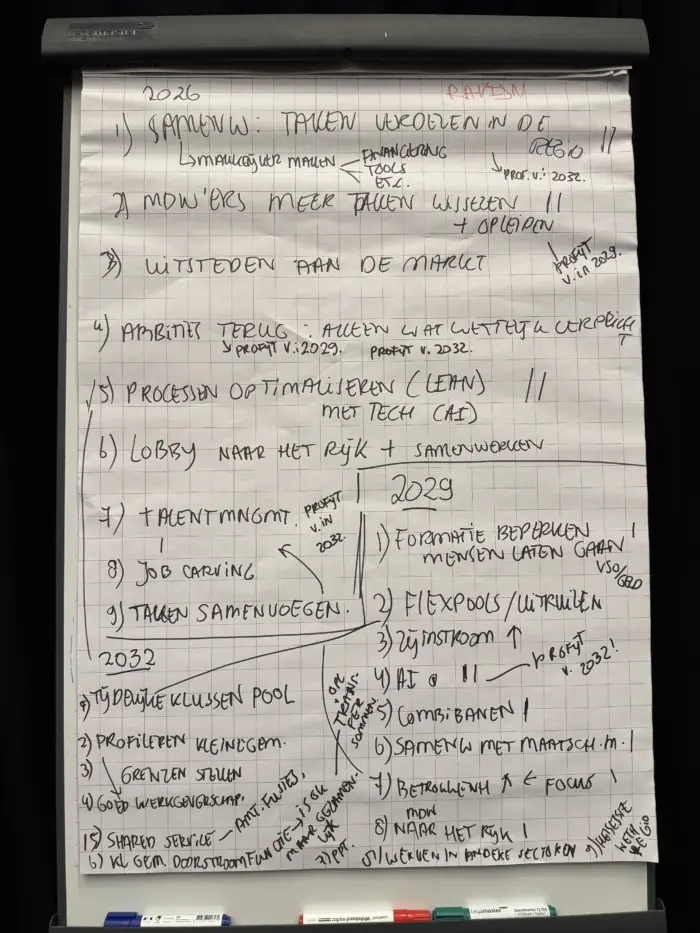 2026
RAVIJN
1) SAMENW: TAKEN VERDELEN IN DE
REGIO ||
↳ MAKKELIJKER MAKEN
FINANCIERING
TOOLS
ETC.
↘ PROF. v.i 2032.
2) MDW'ERS MEER TAKEN WISSELEN ||
+ OPLEIDEN
PROFIJT
v.in 2029.
3) UITSTEDEN AAN DE MARKT
4) AMBITIES TERUG: ALLEEN WAT WETTELIJK VERPLICHT
↘ PROFIJT v.i 2029. PROFIJT v. 2032.
5) PROCESSEN OPTIMALISEREN (LEAN) ||
MET TECH (AI)
6) LOBBY NAAR HET RIJK + SAMENWERKEN
7) TALENTMNGMT.
PROFIJT
v.in
2032.
8) JOB CARVING
9) TAKEN SAMENVOEGEN.
2029
1) FORMATIE BEPERKEN |
MENSEN LATEN GAAN
VSO/GELD
2) FLEXPOOLS/UITRUILEN
3) ZIJINSTROOM ↑
4) AI ||
PROFIJT
v. 2032!
5) COMBIBANEN |
6) SAMENW MET MAATSCH. M. |
7) BETROKKENH ↑ ← FOCUS |
MDW
8) NAAR HET RIJK |
WERVEN IN ANDERE SECTOREN
9)
WETH
REGIO
2032
1) TIJDELIJKE KLUSSEN POOL
2) PROFILEREN KLEINE GEM.
3) GRENZEN STELLEN
4) GOED WERKGEVERSCHAP.
5) SHARED SERVICE — AMT. FUSIES,
6) KL GEM. DOORSTROOMFUNCTIE → IS OK
MAAR GEZAMEN-
LIJK
7) PPT.